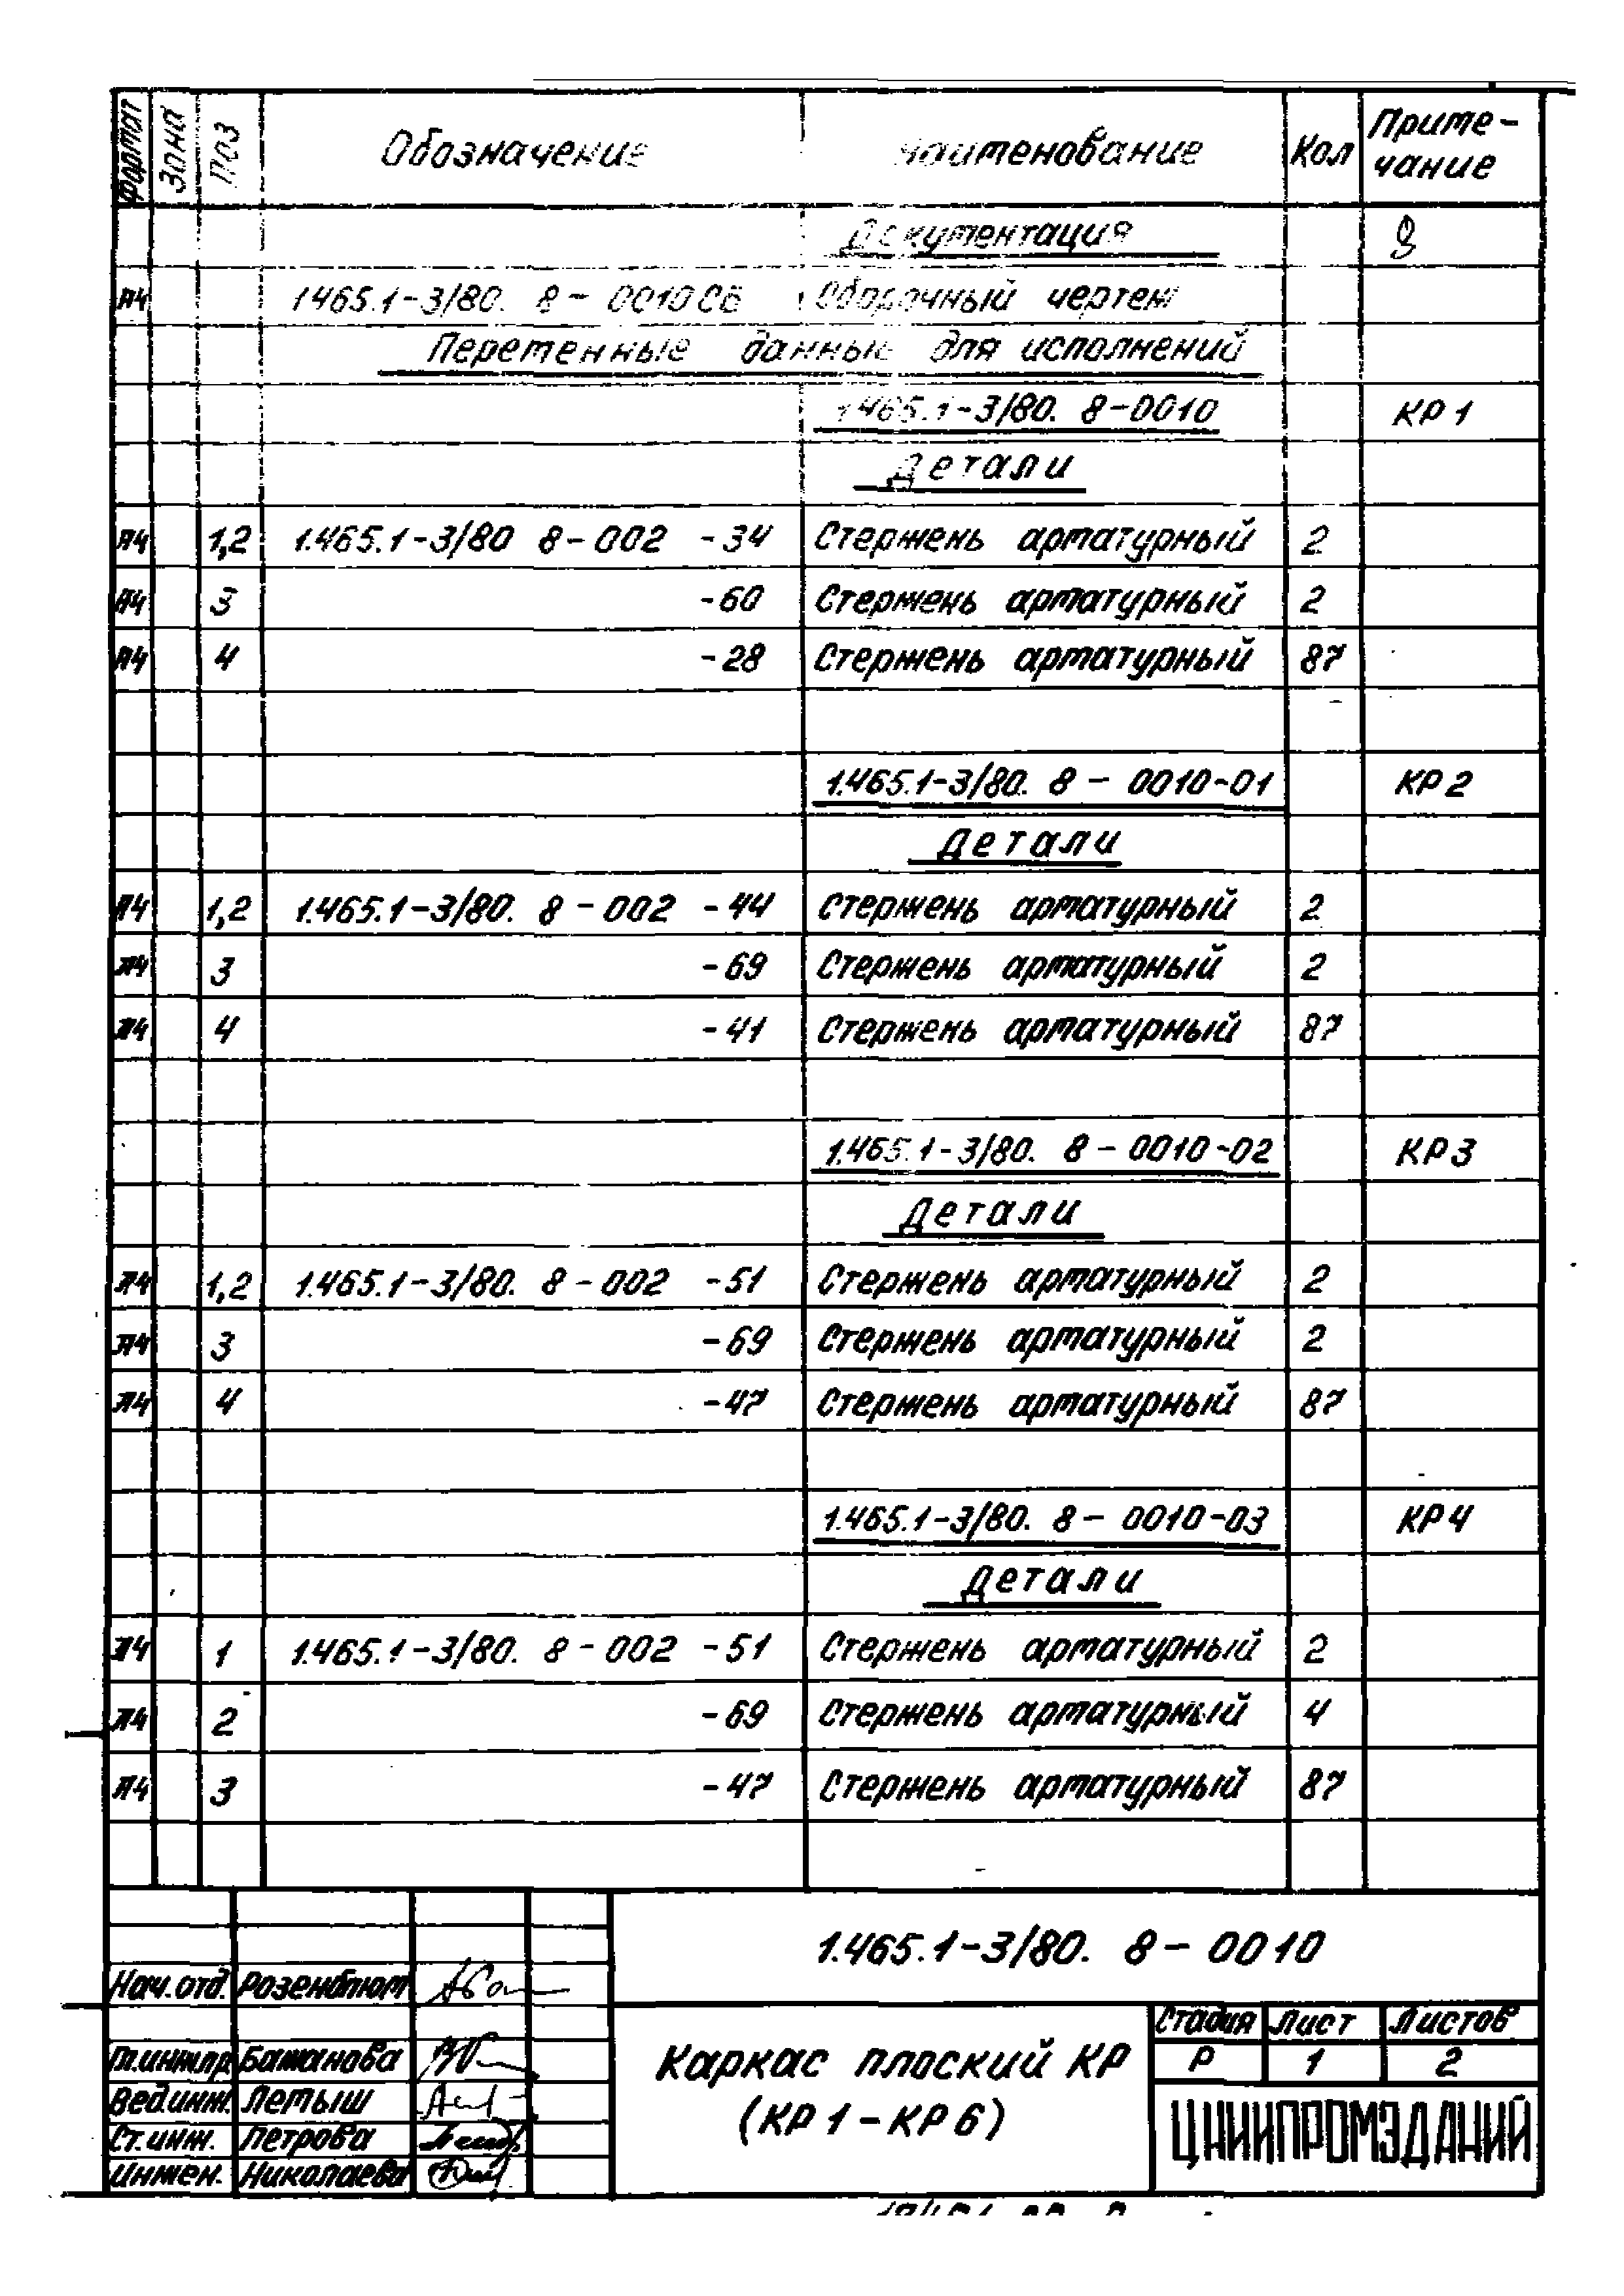 Формат Зона Поз Обозначение Наименование Кол Приме-
чание
Документация 8
А4 1.465.1-3/80. 8-0010СБ Сборочный чертеж
Переменные данные для исполнений
1.465.1-3/80. 8-0010 КР1
Детали
А4 1,2 1.465.1-3/80 8-002 -34 Стержень арматурный 2
А4 3 -60 Стержень арматурный 2
А4 4 -28 Стержень арматурный 87
1.465.1-3/80. 8-0010-01 КР2
Детали
А4 1,2 1.465.1-3/80. 8-002 -44 Стержень арматурный 2
А4 3 -69 Стержень арматурный 2
А4 4 -41 Стержень арматурный 87
1.465.1-3/80. 8-0010-02 КР3
Детали
А4 1,2 1.465.1-3/80. 8-002 -51 Стержень арматурный 2
А4 3 -69 Стержень арматурный 2
А4 4 -47 Стержень арматурный 87
1.465.1-3/80. 8-0010-03 КР4
Детали
А4 1 1.465.1-3/80. 8-002 -51 Стержень арматурный 2
А4 2 -69 Стержень арматурный 4
А4 3 -47 Стержень арматурный 87
1.465.1-3/80. 8-0010
Нач.отд. Розенблюм
Гл.инж.пр Бажанова
Вед.инж. Летыш
Ст.инж. Петрова
Инжен. Николаева
Каркас плоский КР
(КР1-КР6)
Стадия Лист Листов
Р 1 2
ЦНИИПРОМЗДАНИЙ